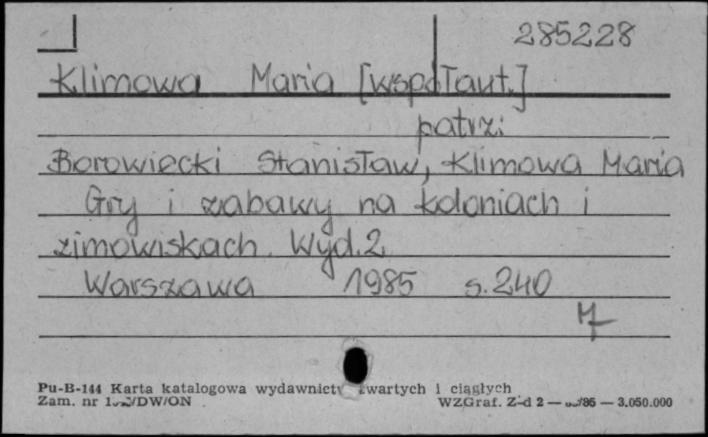 285228
Klimowa Maria [współaut.]
patrz:
Borowiecki Stanisław, Klimowa Maria
Gry i zabawy na koloniach i
zimowiskach. Wyd.2
Warszawa 1985 s.240
Pu-B-144 Karta katalogowa wydawnictw zwartych i ciągłych
Zam. nr /DW/ON WZGraf. Z-d 2 — /86 — 3.050.000